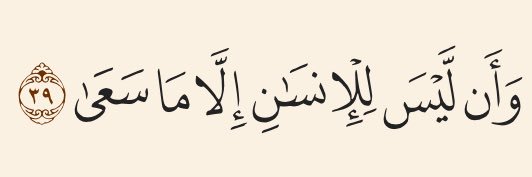 وَأَن لَّيْسَ لِلْإِنسَـٰنِ إِلَّا مَا سَعَىٰ ٣٩